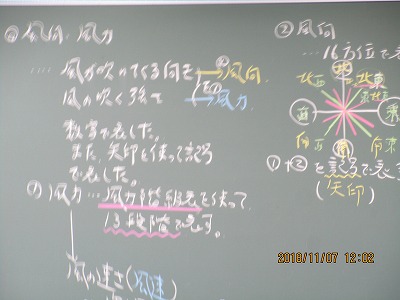 風向・風力
風が吹いてくる向きを→風向
風の吹く強さ→風力
数字で表した。
また、矢印を使って記号
で表した。
① 風力…風力階級表を使って
13段階で表す。
風の速さ(風速)
② 風向
…16方位で表
北
北東
北西
西
東
南西
南東
南
①+②を記号で表
(矢印)
2018/11/07 12:02